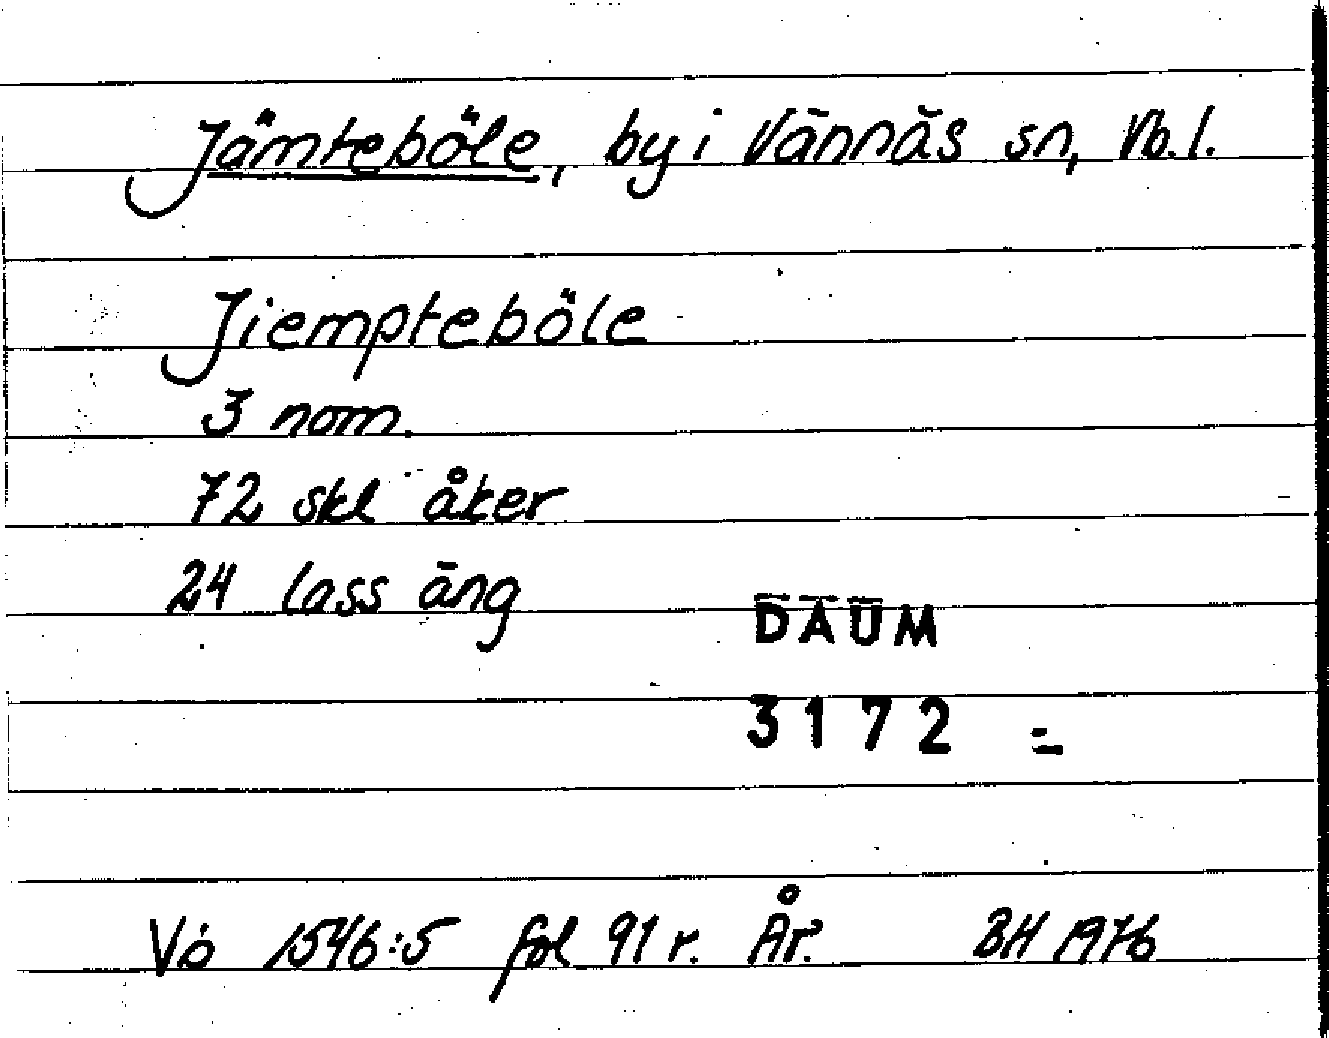 Jämteböle, by i Vännäs sn, Vb. l.
Jiempteböle
3 nom.
72 skl åker
24 lass äng
DAUM
3172
Vb 1546:5 fol 91 r. År. BH 1976